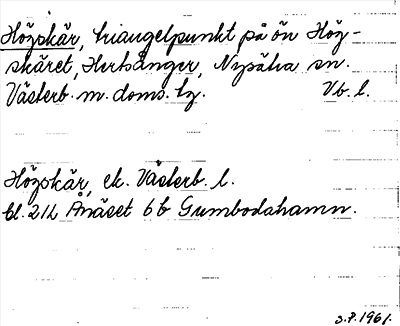 Högskär, triangelpunkt på ön Hög-
skäret, Hertsånger, Nysätra sn.
Västerb. m. doms. lg. Vb. l.
Högskär, ek. Västerb. l.
bl. 21L Ånäset 6b Gumbodahamn.
3.7.1961.